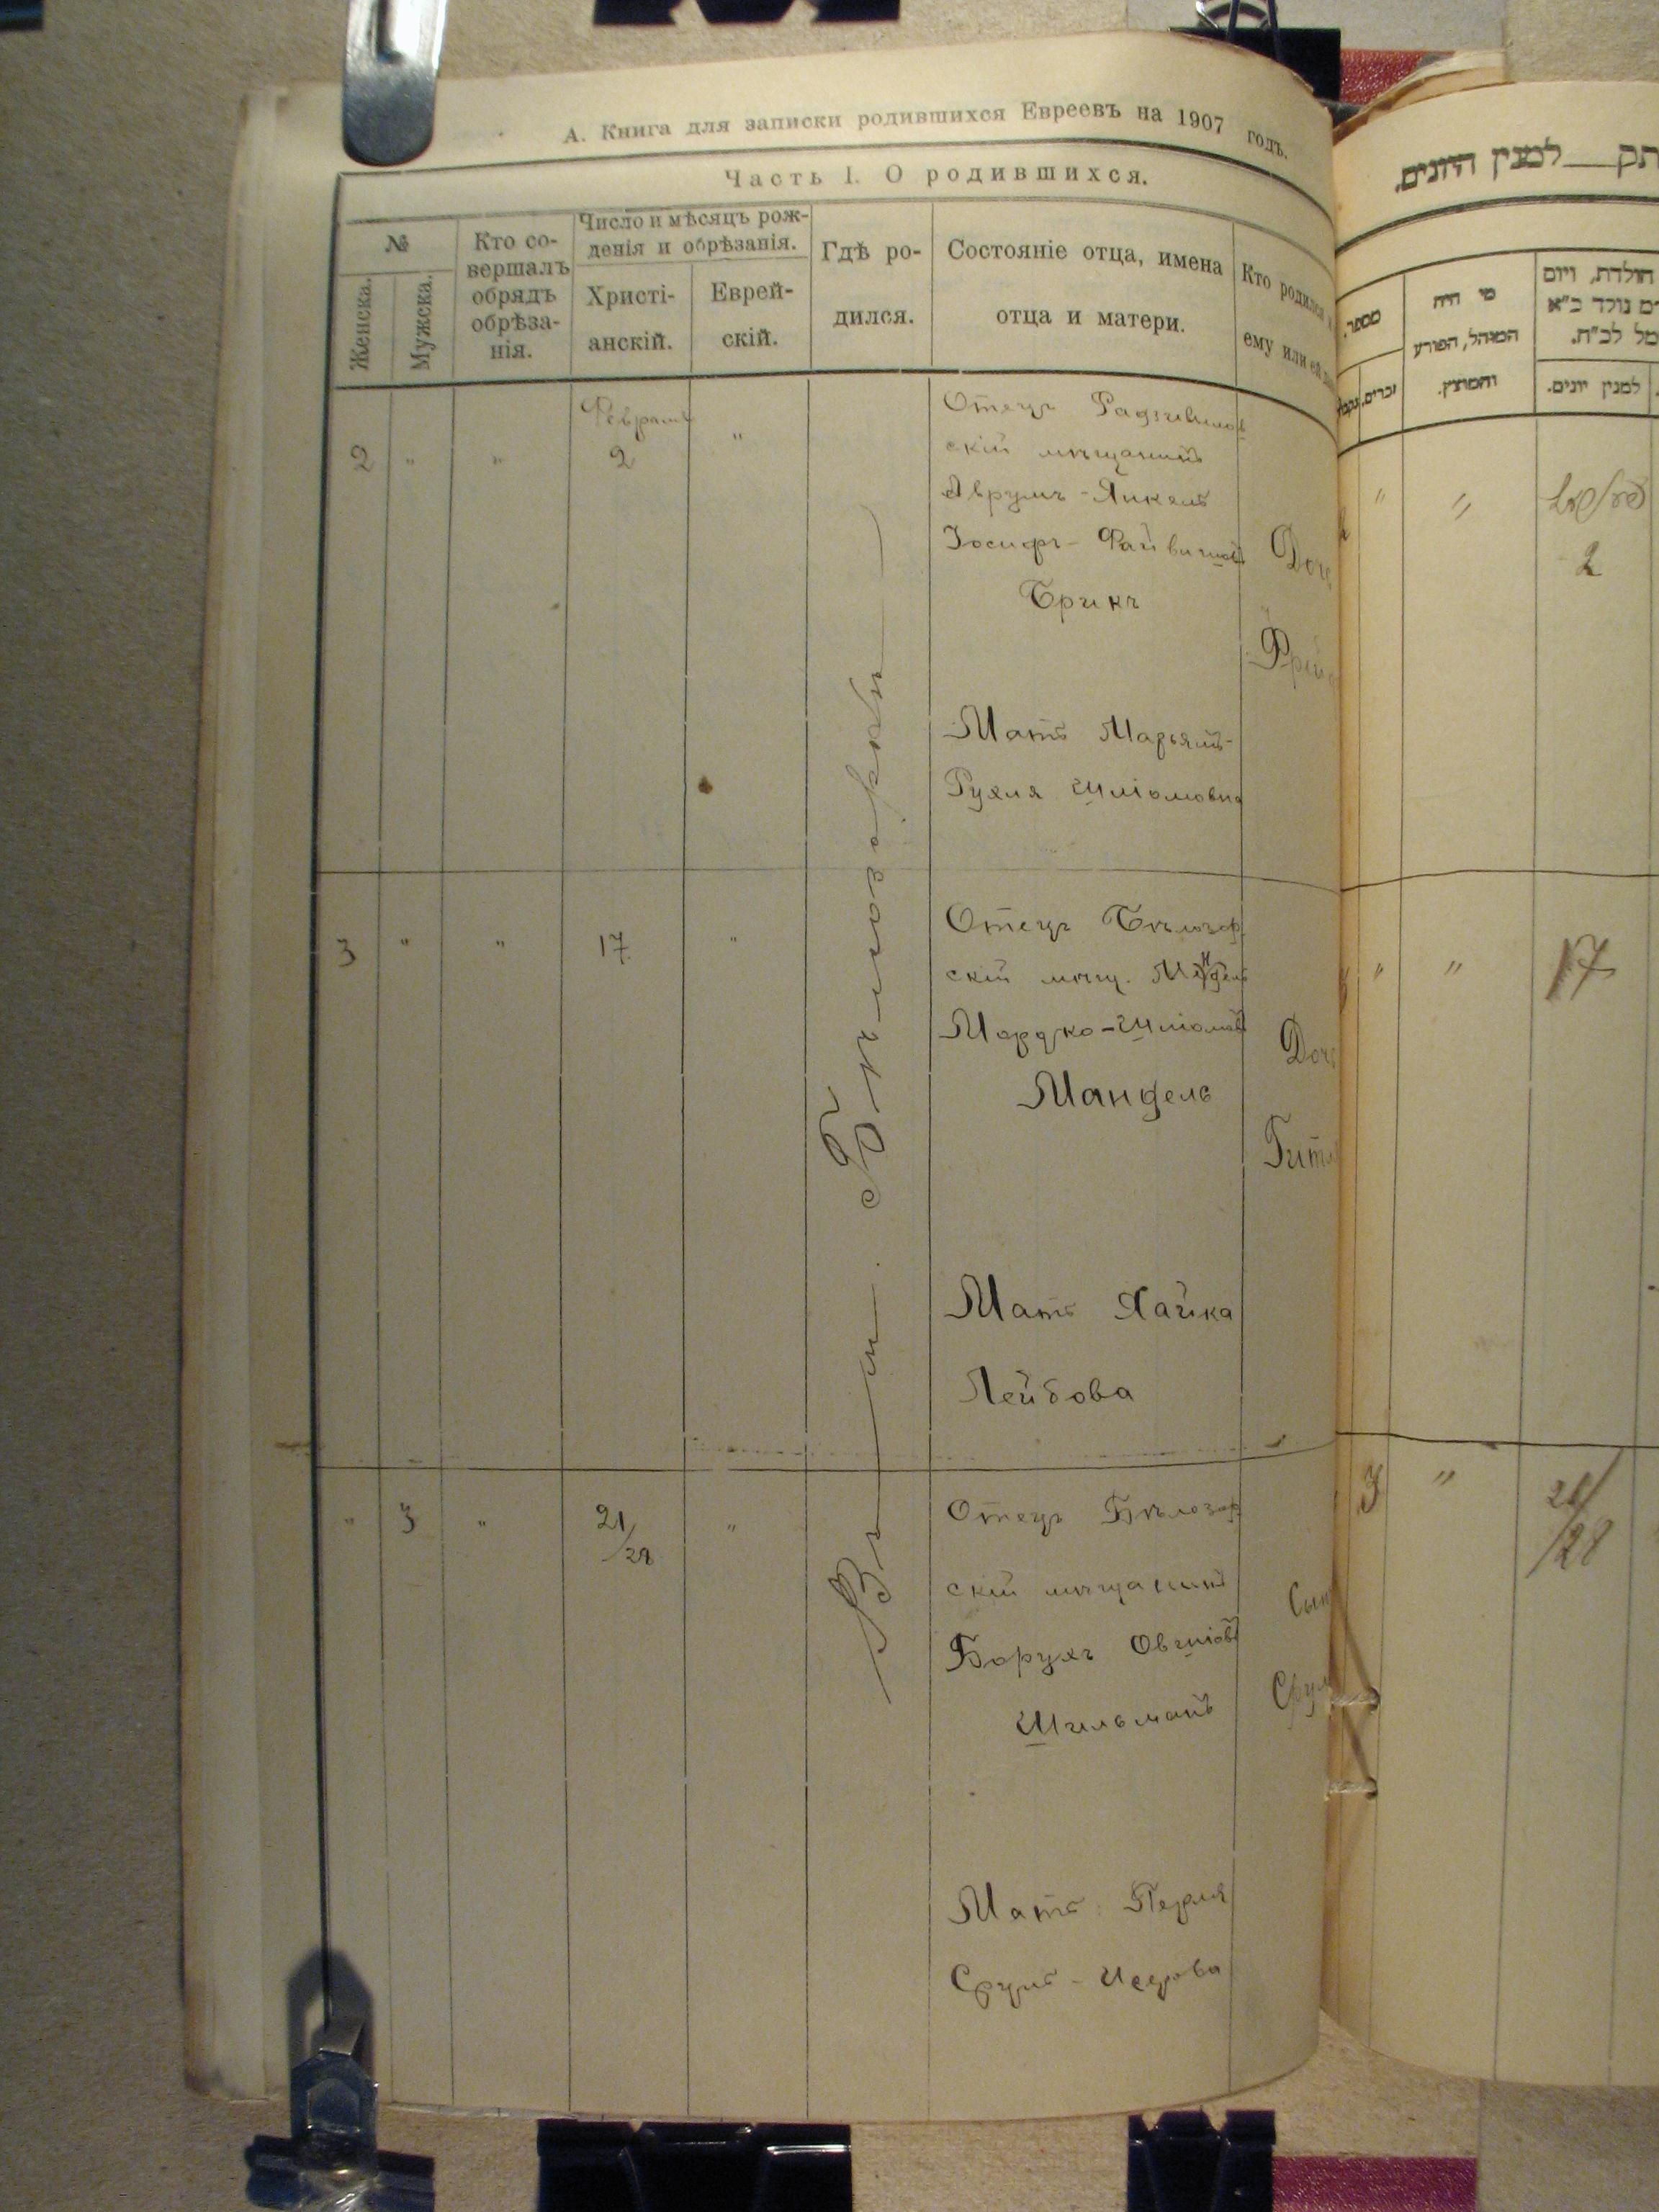 А. Книга для записки родившихся Евреевъ на 1907 годъ.
Часть I. О родившихся.
№
Женска.
Мужска.
Кто со-
вершалъ
обрядъ
обрѣза-
нія.
Число и мѣсяцъ рож-
денія и обрѣзанія.
Христі-
анскій.
Еврей-
скій.
Гдѣ ро-
дился.
Состояніе отца, имена
отца и матери.
Кто родился
ему или ей
2 " " Февраля 2 "
Отецъ Радзивилов
скій мѣщанинъ
Аврумъ-Янкель
Іосифъ-Файвишов
Брикъ
Мать Марьямъ-
Рухля Шліомовна
Доч
Фрей
Въ м. Бѣлозоркѣ
3 " " 17 "
Отецъ Бѣлозор
скій мѣщ. Мендель
Мордко-Шліомов
Мандель
Мать Хайка
Лейбова
Доч
Гит
" 3 " 21/28 "
Отецъ Бѣлозор
скій мѣщанинъ
Борухъ Овшіов
Шильманъ
Мать Перля
Сруль-
Сын
Срул
למנין היונים.
מספר.
זכרים.
מי היה
המוהל, הפורע
והמוצץ.
הולדת, ויום
נולד כ"א
מל לכ"ח.
למנין יונים.
" "
2
" " 17
3 " 21/28